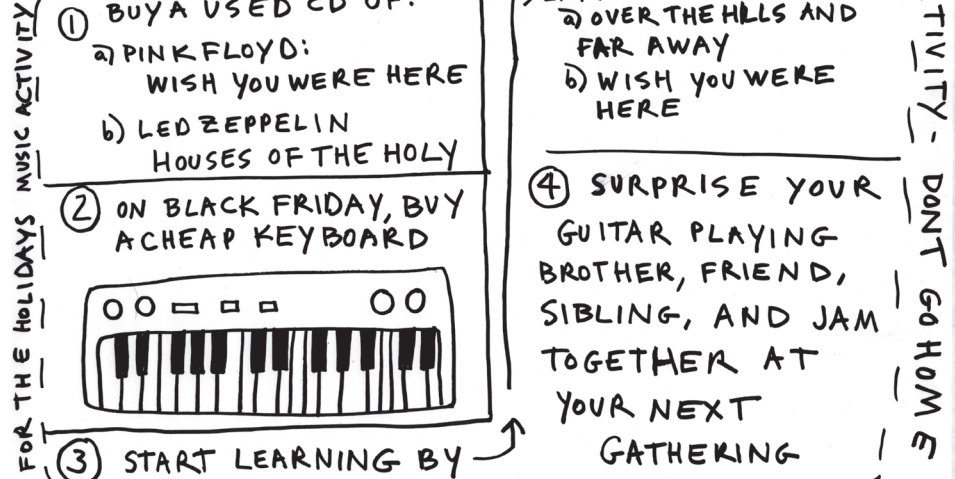 FOR THE HOLIDAYS MUSIC ACTIVITY
① BUY A USED CD OF:
a) PINK FLOYD:
WISH YOU WERE HERE
b) LED ZEPPELIN
HOUSES OF THE HOLY
② ON BLACK FRIDAY, BUY
A CHEAP KEYBOARD
③ START LEARNING BY
a) OVER THE HILLS AND
FAR AWAY
b) WISH YOU WERE
HERE
④ SURPRISE YOUR
GUITAR PLAYING
BROTHER, FRIEND,
SIBLING, AND JAM
TOGETHER AT
YOUR NEXT
GATHERING
TIVITY - DONT GO HOME